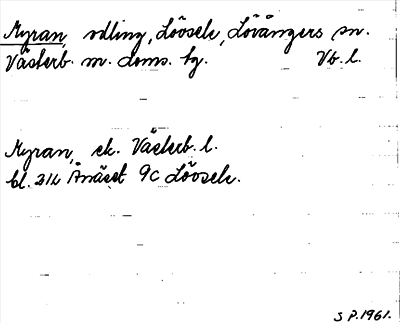 Myran, odling, Lövsele, Lövångers sn.
Västerb. m. doms. tg. Vb. l.
Myran, ek. Västerb. l.
bl. 214 Ånäset 9c Lövsele.
S P. 1961.